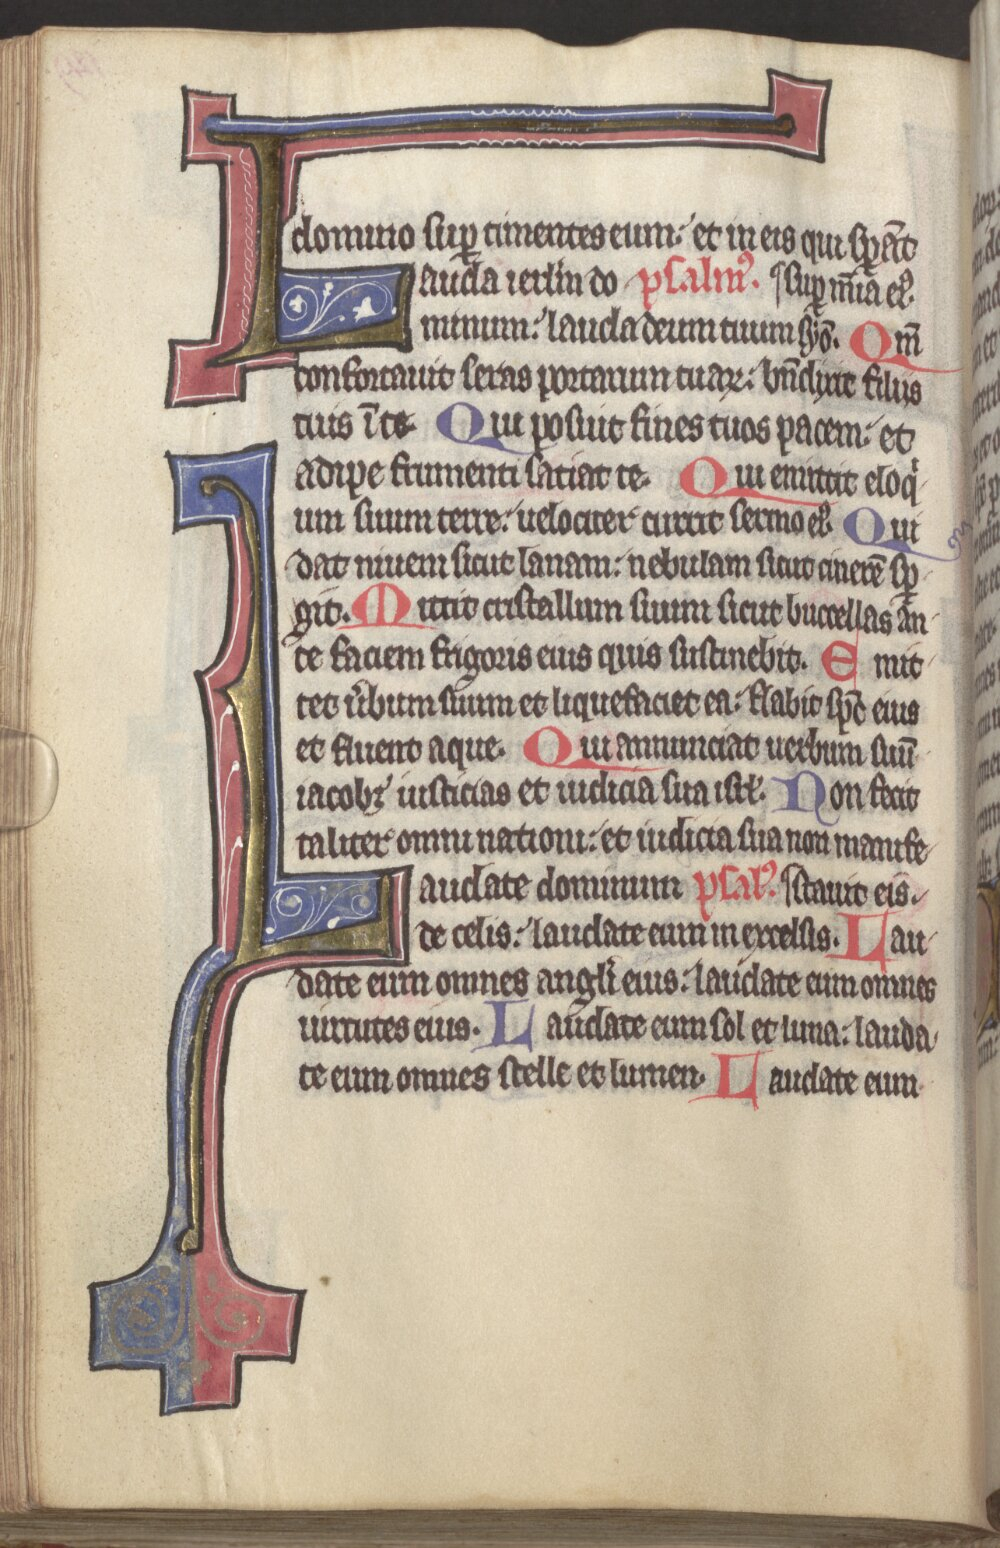 domino sup̱ timentes eum: et in eis qui sp̱ãt
Lauda ierl̃m do psalm̃⁹. sup̱ mĩa eꝰ.
minum: lauda deum tuum syõ. Qm̃
confortauit seras portarum tuaꝝ: bñdixit filiis
tuis ĩ te. Qui posuit fines tuos pacem: et
adipe frumenti satiat te. Qui emittit eloqⁱ
um suum terre: uelociter currit sermo eꝰ. Qui
dat niuem sicut lanam: nebulam sicut cinerẽ sp̱
git. Mittit cristallum suum sicut buccellas an
te faciem frigoris eius quis sustinebit. Emit
tet u̾bum suum et liquefaciet ea: flabit sp̃c eius
et fluent aque. Qui annunciat uerbum suũ
iacob: iusticias et iudicia sua isrl̃. Non fecit
taliter omni nationi: et iudicia sua non manife
Laudate dominum psal⁹. stauit eis.
de celis: laudate eum in excelsis. Lau
date eum omnes angl̃i eius: laudate eum omnes
uirtutes eius. Laudate eum sol et luna: lauda
te eum omnes stelle et lumen. Laudate eum